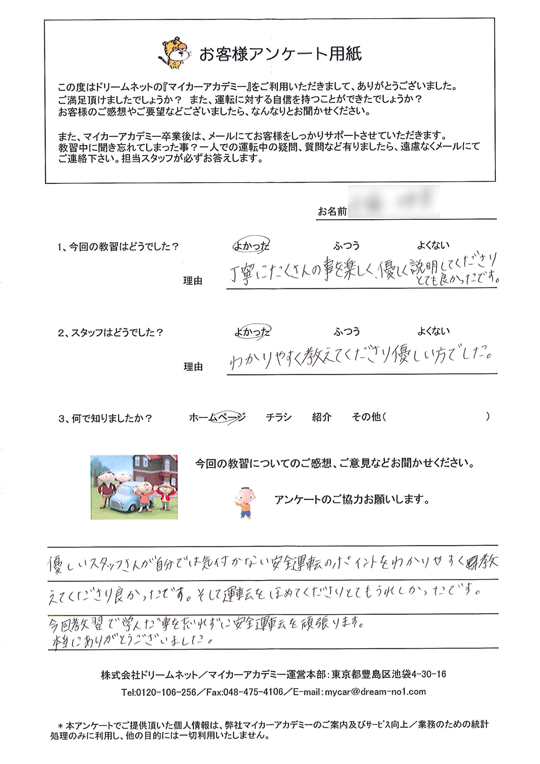 お客様アンケート用紙
この度はドリームネットの『マイカーアカデミー』をご利用いただきまして、ありがとうございました。
ご満足頂けましたでしょうか？ また、運転に対する自信を持つことができたでしょうか？
お客様のご感想やご要望などございましたら、なんなりとお聞かせください。
また、マイカーアカデミー卒業後は、メールにてお客様をしっかりサポートさせていただきます。
教習中に聞き忘れてしまった事？一人での運転中の疑問、質問など有りましたら、遠慮なくメールにて
ご連絡下さい。担当スタッフが必ずお答えします。
お名前
1、今回の教習はどうでした？ よかった ふつう よくない
理由 丁寧にたくさんの事を楽しく、優しく説明してくださり
とても良かったです。
2、スタッフはどうでした？ よかった ふつう よくない
理由 わかりやすく教えてくださり優しい方でした。
3、何で知りましたか？ ホームページ チラシ 紹介 その他( )
今回の教習についてのご感想、ご意見などお聞かせください。
アンケートのご協力お願いします。
優しいスタッフさんが自分では気付かない安全運転のポイントをわかりやすく教
えてくださり良かったです。そして運転をほめてくださりとてもうれしかったです。
今回教習で学んだ事を忘れずに安全運転を頑張ります。
本当にありがとうございました。
株式会社ドリームネット／マイカーアカデミー運営本部：東京都豊島区池袋4-30-16
Tel:0120-106-256／Fax:048-475-4106／E-mail:mycar@dream-no1.com
＊本アンケートでご提供頂いた個人情報は、弊社マイカーアカデミーのご案内及びサービス向上／業務のための統計
処理のみに利用し、他の目的には一切利用いたしません。